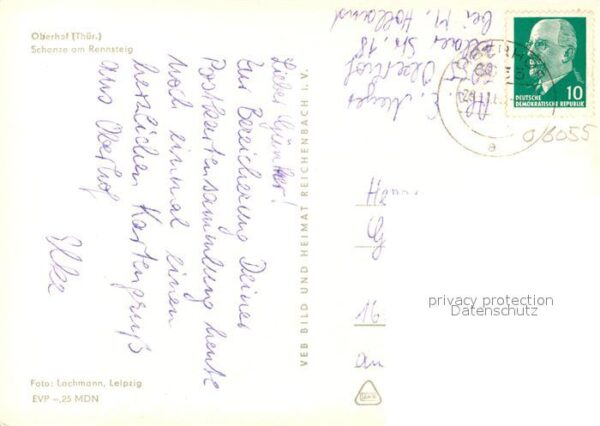 Oberhof (Thür.)
Schanze am Rennsteig
Lieber Günther!
Zur Bereicherung Deiner
Postkartensammlung heute
noch einmal einen
herzlichen Kartengruß
aus Oberhof
Elke
Foto: Lachmann, Leipzig
EVP –,25 MDN
VEB BILD UND HEIMAT REICHENBACH I. V.
E. Meyer
Oberhof
Str. 18
bei M. Holland
DEUTSCHE
DEMOKRATISCHE REPUBLIK
10
a
0/8055
Herrn
16
an
privacy protection
Datenschutz